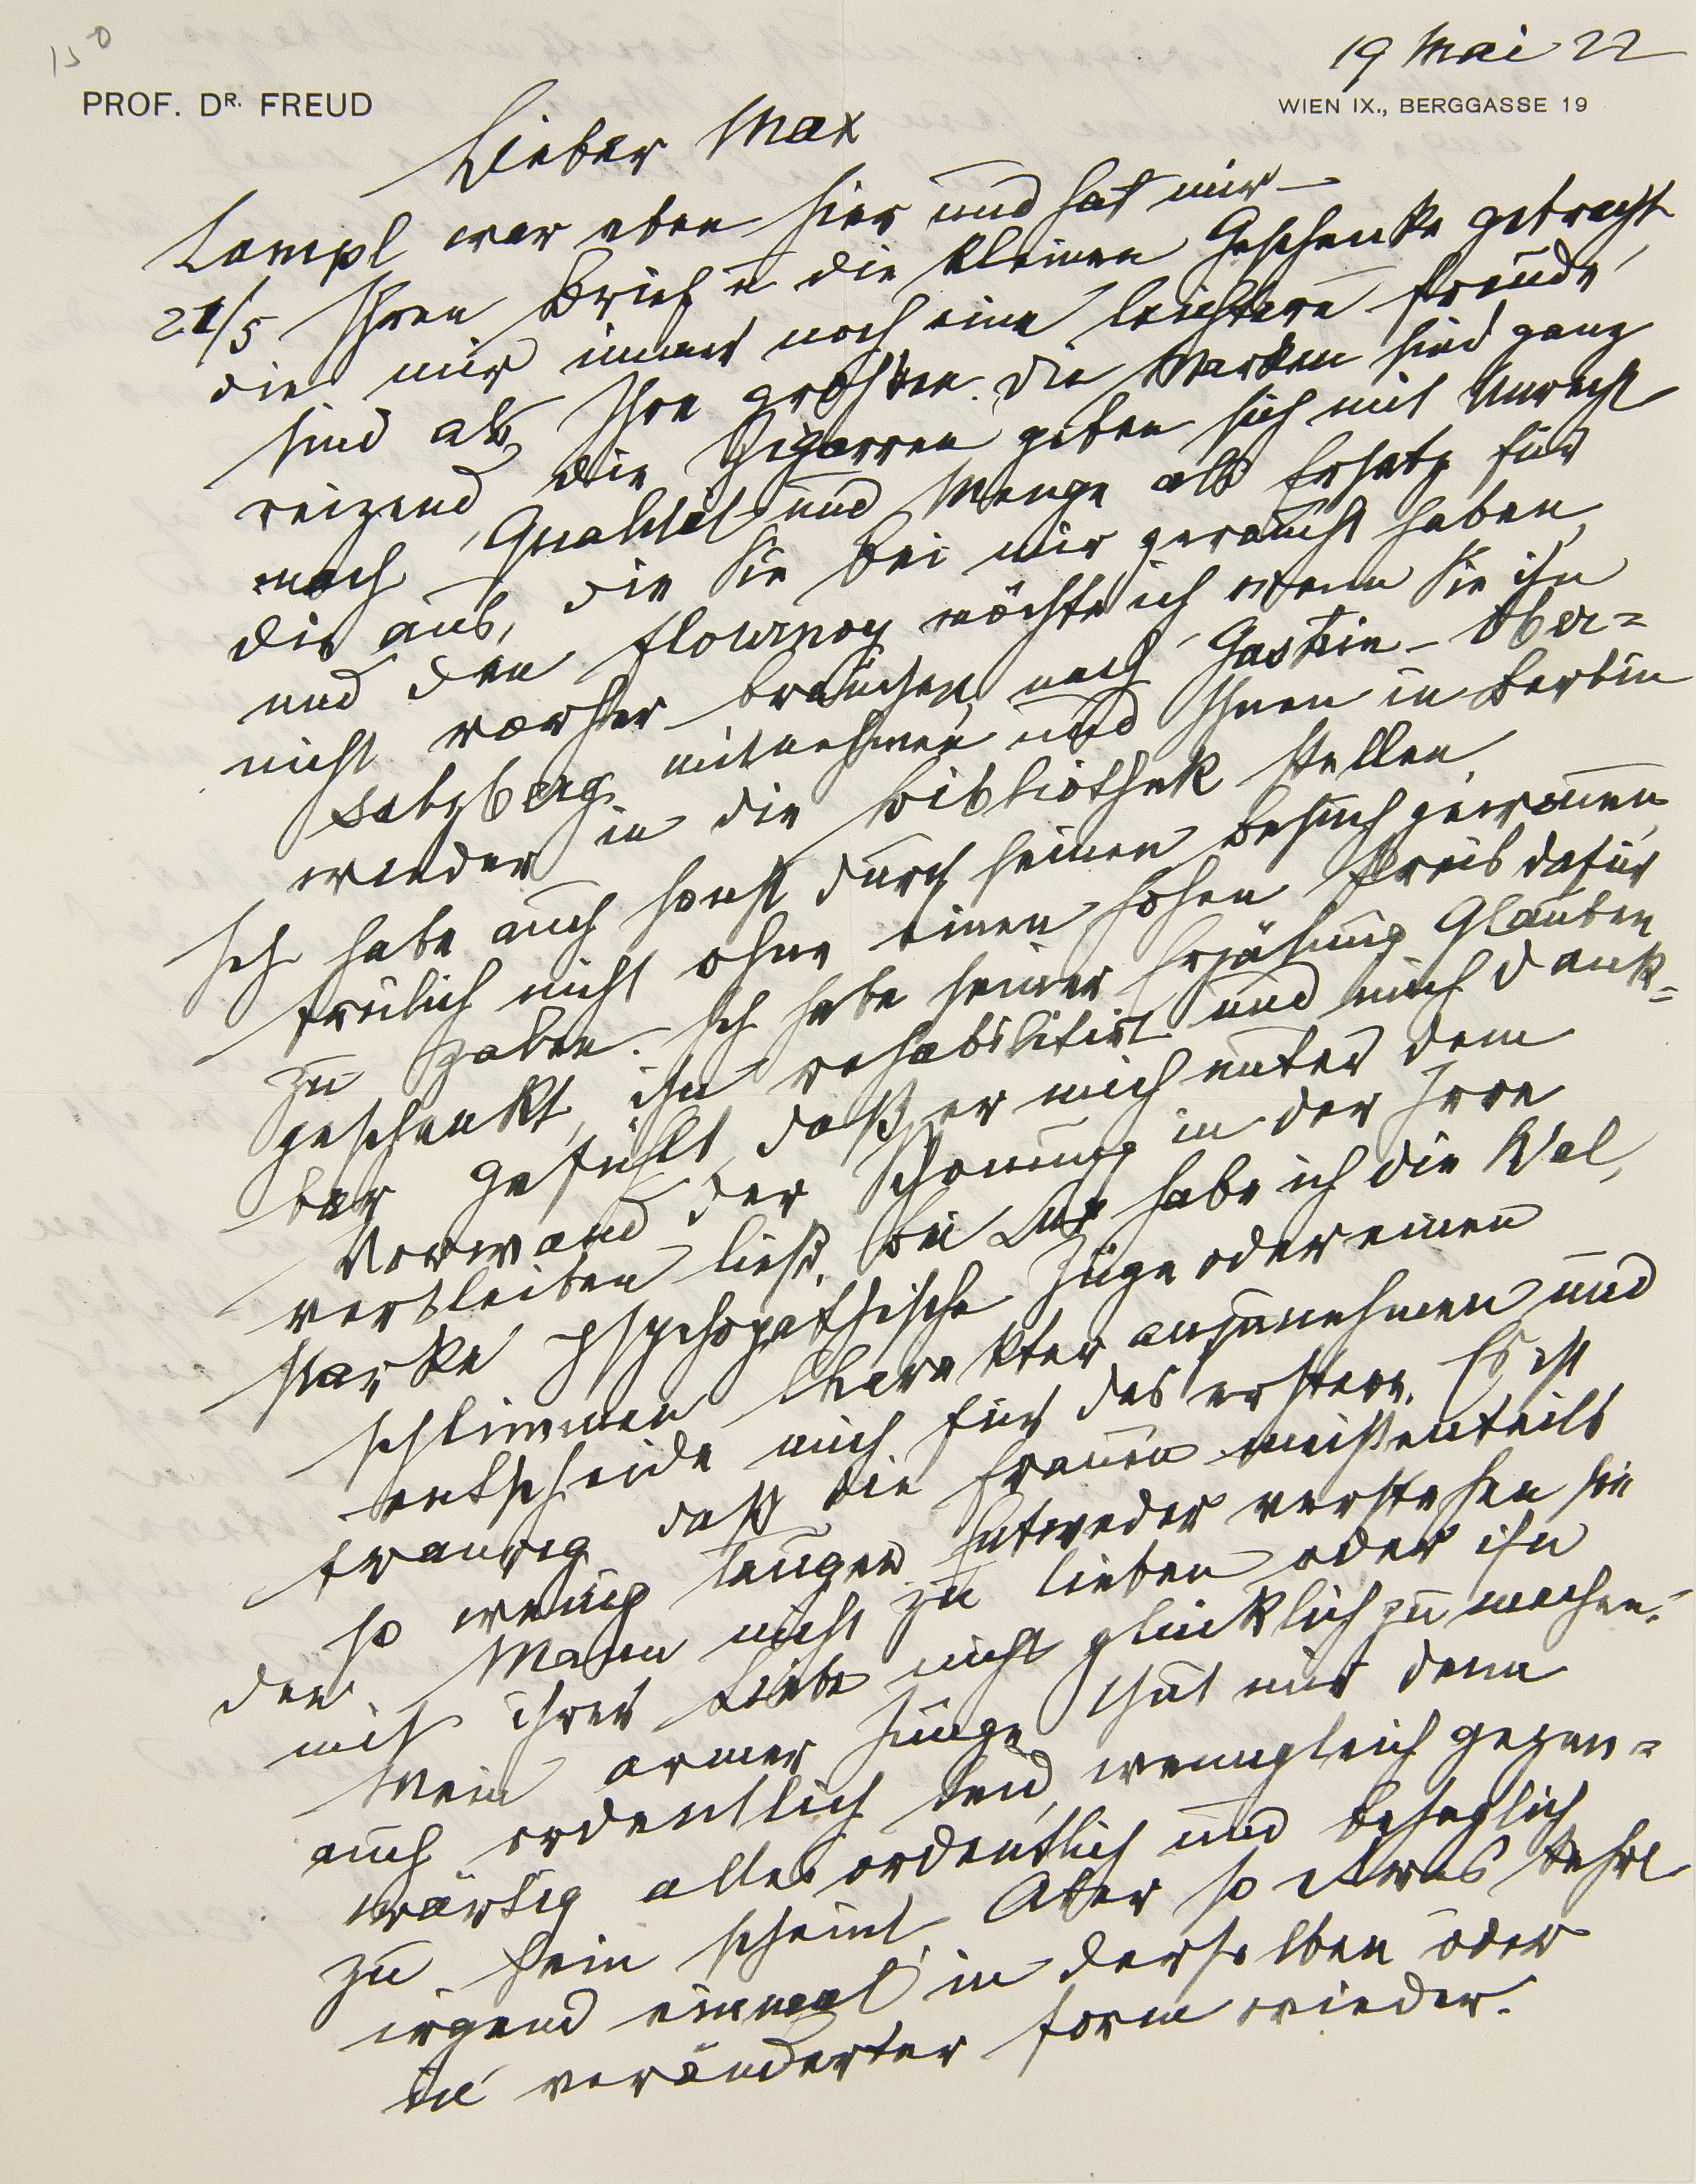 150
19 Mai 22
PROF. DR. FREUD
WIEN IX., BERGGASSE 19
Lieber Max
Lampl war eben hier und hat mir —
21/5 Ihren Brief u die kleinen Geschenke gebracht,
die mir immer noch eine leichtere Freude
sind als Ihre größten. Die Marken sind ganz
reizend, die Zigarren geben sich mit Unrecht
nach Qualität und Menge als Ersatz für
die aus, die Sie bei mir geraucht haben,
und den Flournoy möchte ich wenn Sie ihn
nicht vorher brauchen, nach Gastein – Ober=
salzberg mitnehmen und Ihnen in Berlin
wieder in die Bibliothek stellen.
Ich habe auch sonst durch seinen Besuch gewonnen,
freilich nicht ohne einen hohen Preis dafür
zu zalen. Ich habe seiner Erzählung Glauben
geschenkt, ihn rehabilitirt und mich dank=
bar gefühlt, daß er mich unter dem
Vorwand der Schonung in der Irre
verbleiben ließ. Bei habe ich die Wal,
starke psychopathische Züge oder einen
schlimmen Charakter anzunehmen und
entscheide mich für das erstere. Es ist
traurig, daß die Frauen meistenteils
so wenig taugen. Entweder verstehen sie
den Mann nicht zu lieben oder ihn
mit ihrer Liebe nicht glücklich zu machen.
Mein armer Junge thut mir denn
auch ordentlich leid, wenngleich gegen=
wärtig alles ordentlich und behaglich
zu sein scheint. Aber so etwas kehrt
irgend einmal in derselben oder
in veränderter Form wieder.